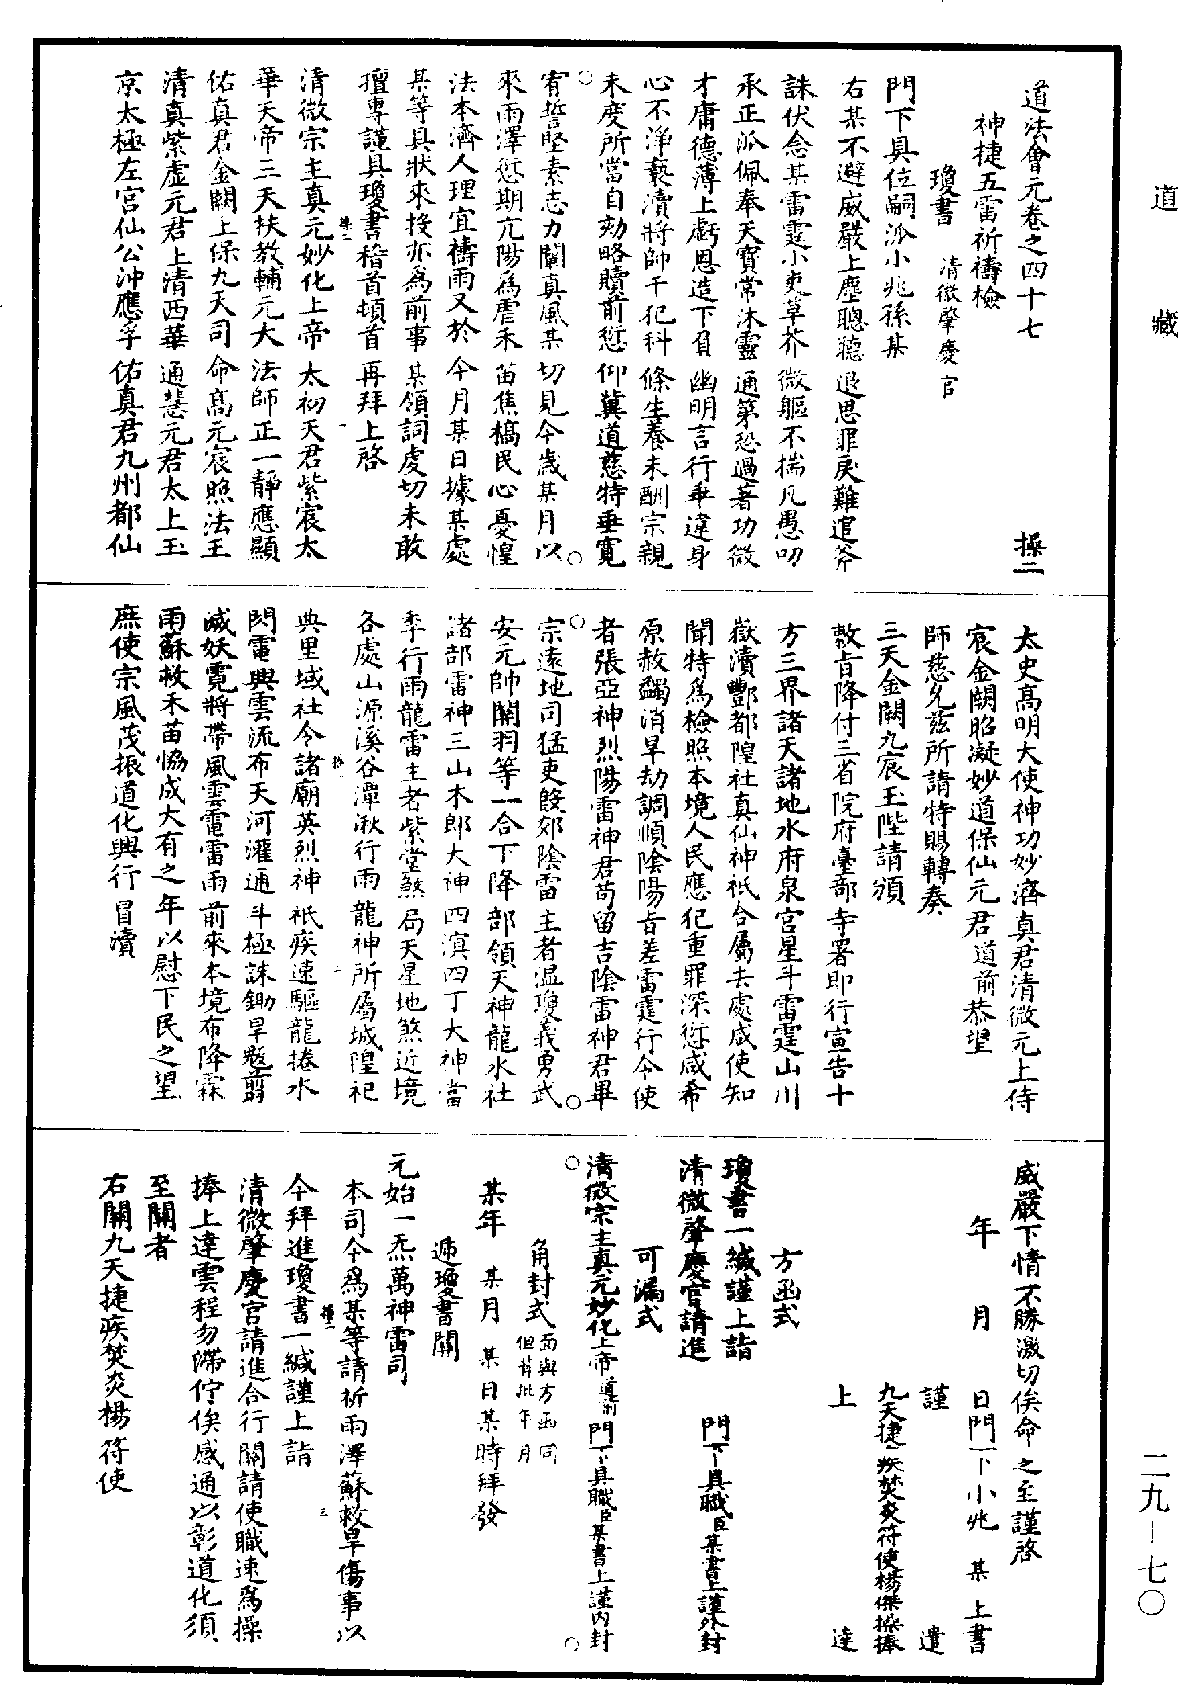 道藏
二九–七〇
道法會元卷之四十七 操二
神捷五雷祈禱檢
瓊書 清微肇慶官
門下具位嗣派小兆孫某
右某不避威嚴上塵聰聽退思罪戾難逭斧
誅伏念某雷霆小吏草芥微軀不揣凡愚叨
承正派佩奉天寶常沐靈通第恐過著功微
才庸德薄上虧恩造下負幽明言行乖違身
心不淨褻瀆將帥干犯科條生養未酬宗親
未度所當自劾略贖前愆仰冀道慈特垂寬
宥誓堅素志力闡真風某切見今歲某月以
來雨澤愆期亢陽為虐禾苗焦槁民心憂惶
法本濟人理宜禱雨又於今月某日據某處
某等具狀來投亦為前事某領詞虔切未敢
擅專謹具瓊書稽首頓首再拜上啓
清微宗主真元妙化上帝太初天君紫宸太
華天帝三天扶教輔元大法師正一靜應顯
佑真君金闕上保九天司命高元宸照法王
清真紫虛元君上清西華通慧元君太上玉
京太極左宮仙公沖應孚佑真君九州都仙
太史高明大使神功妙濟真君清微元上侍
宸金闕昭凝妙道保仙元君道前恭望
師慈允茲所請特賜轉奏
三天金闕九宸玉陛請頒
敕旨降付三省院府臺部寺署即行宣告十
方三界諸天諸地水府泉宮星斗雷霆山川
嶽瀆酆都隍社真仙神祇合屬去處咸使知
聞特為檢照本境人民應犯重罪深愆咸希
原赦蠲消旱劫調順陰陽旨差雷霆行令使
者張亞神烈陽雷神君苟留吉陰雷神君畢
宗遠地司猛吏殷郊陰雷主者溫瓊義勇武
安元帥關羽等一合下降部領天神龍水社
諸部雷神三山木郎大神四溟四丁大神當
季行雨龍雷主者紫堂煞局天星地煞近境
各處山源溪谷潭湫行雨龍神所屬城隍祀
典里域社令諸廟英烈神祇疾速驅龍捲水
閃電興雲流布天河灌通斗極誅鋤旱魃翦
滅妖霓將帶風雲電雷雨前來本境布降霖
雨蘇救禾苗協成大有之年以慰下民之望
庶使宗風茂振道化興行冒瀆
威嚴下情不勝激切俟命之至謹啓
年 月 日門下小兆 某 上書
謹 遣
九天捷疾焚炎符使楊傑操捧
上 達
方函式
瓊書一緘謹上詣
清微肇慶官請進 門下具職臣某書上謹外封
可漏式
清微宗主真元妙化上帝道前門下具職臣某書上謹內封
角封式面與方函同但背批年月
某年 某月 某日某時拜發
遞瓊書關
元始一炁萬神雷司
本司今為某等請祈雨澤蘇救旱傷事以
今拜進瓊書一緘謹上詣
清微肇慶官請進合行關請使職速為操
捧上達雲程勿滯佇俟感通以彰道化須
至關者
右關九天捷疾焚炎楊符使